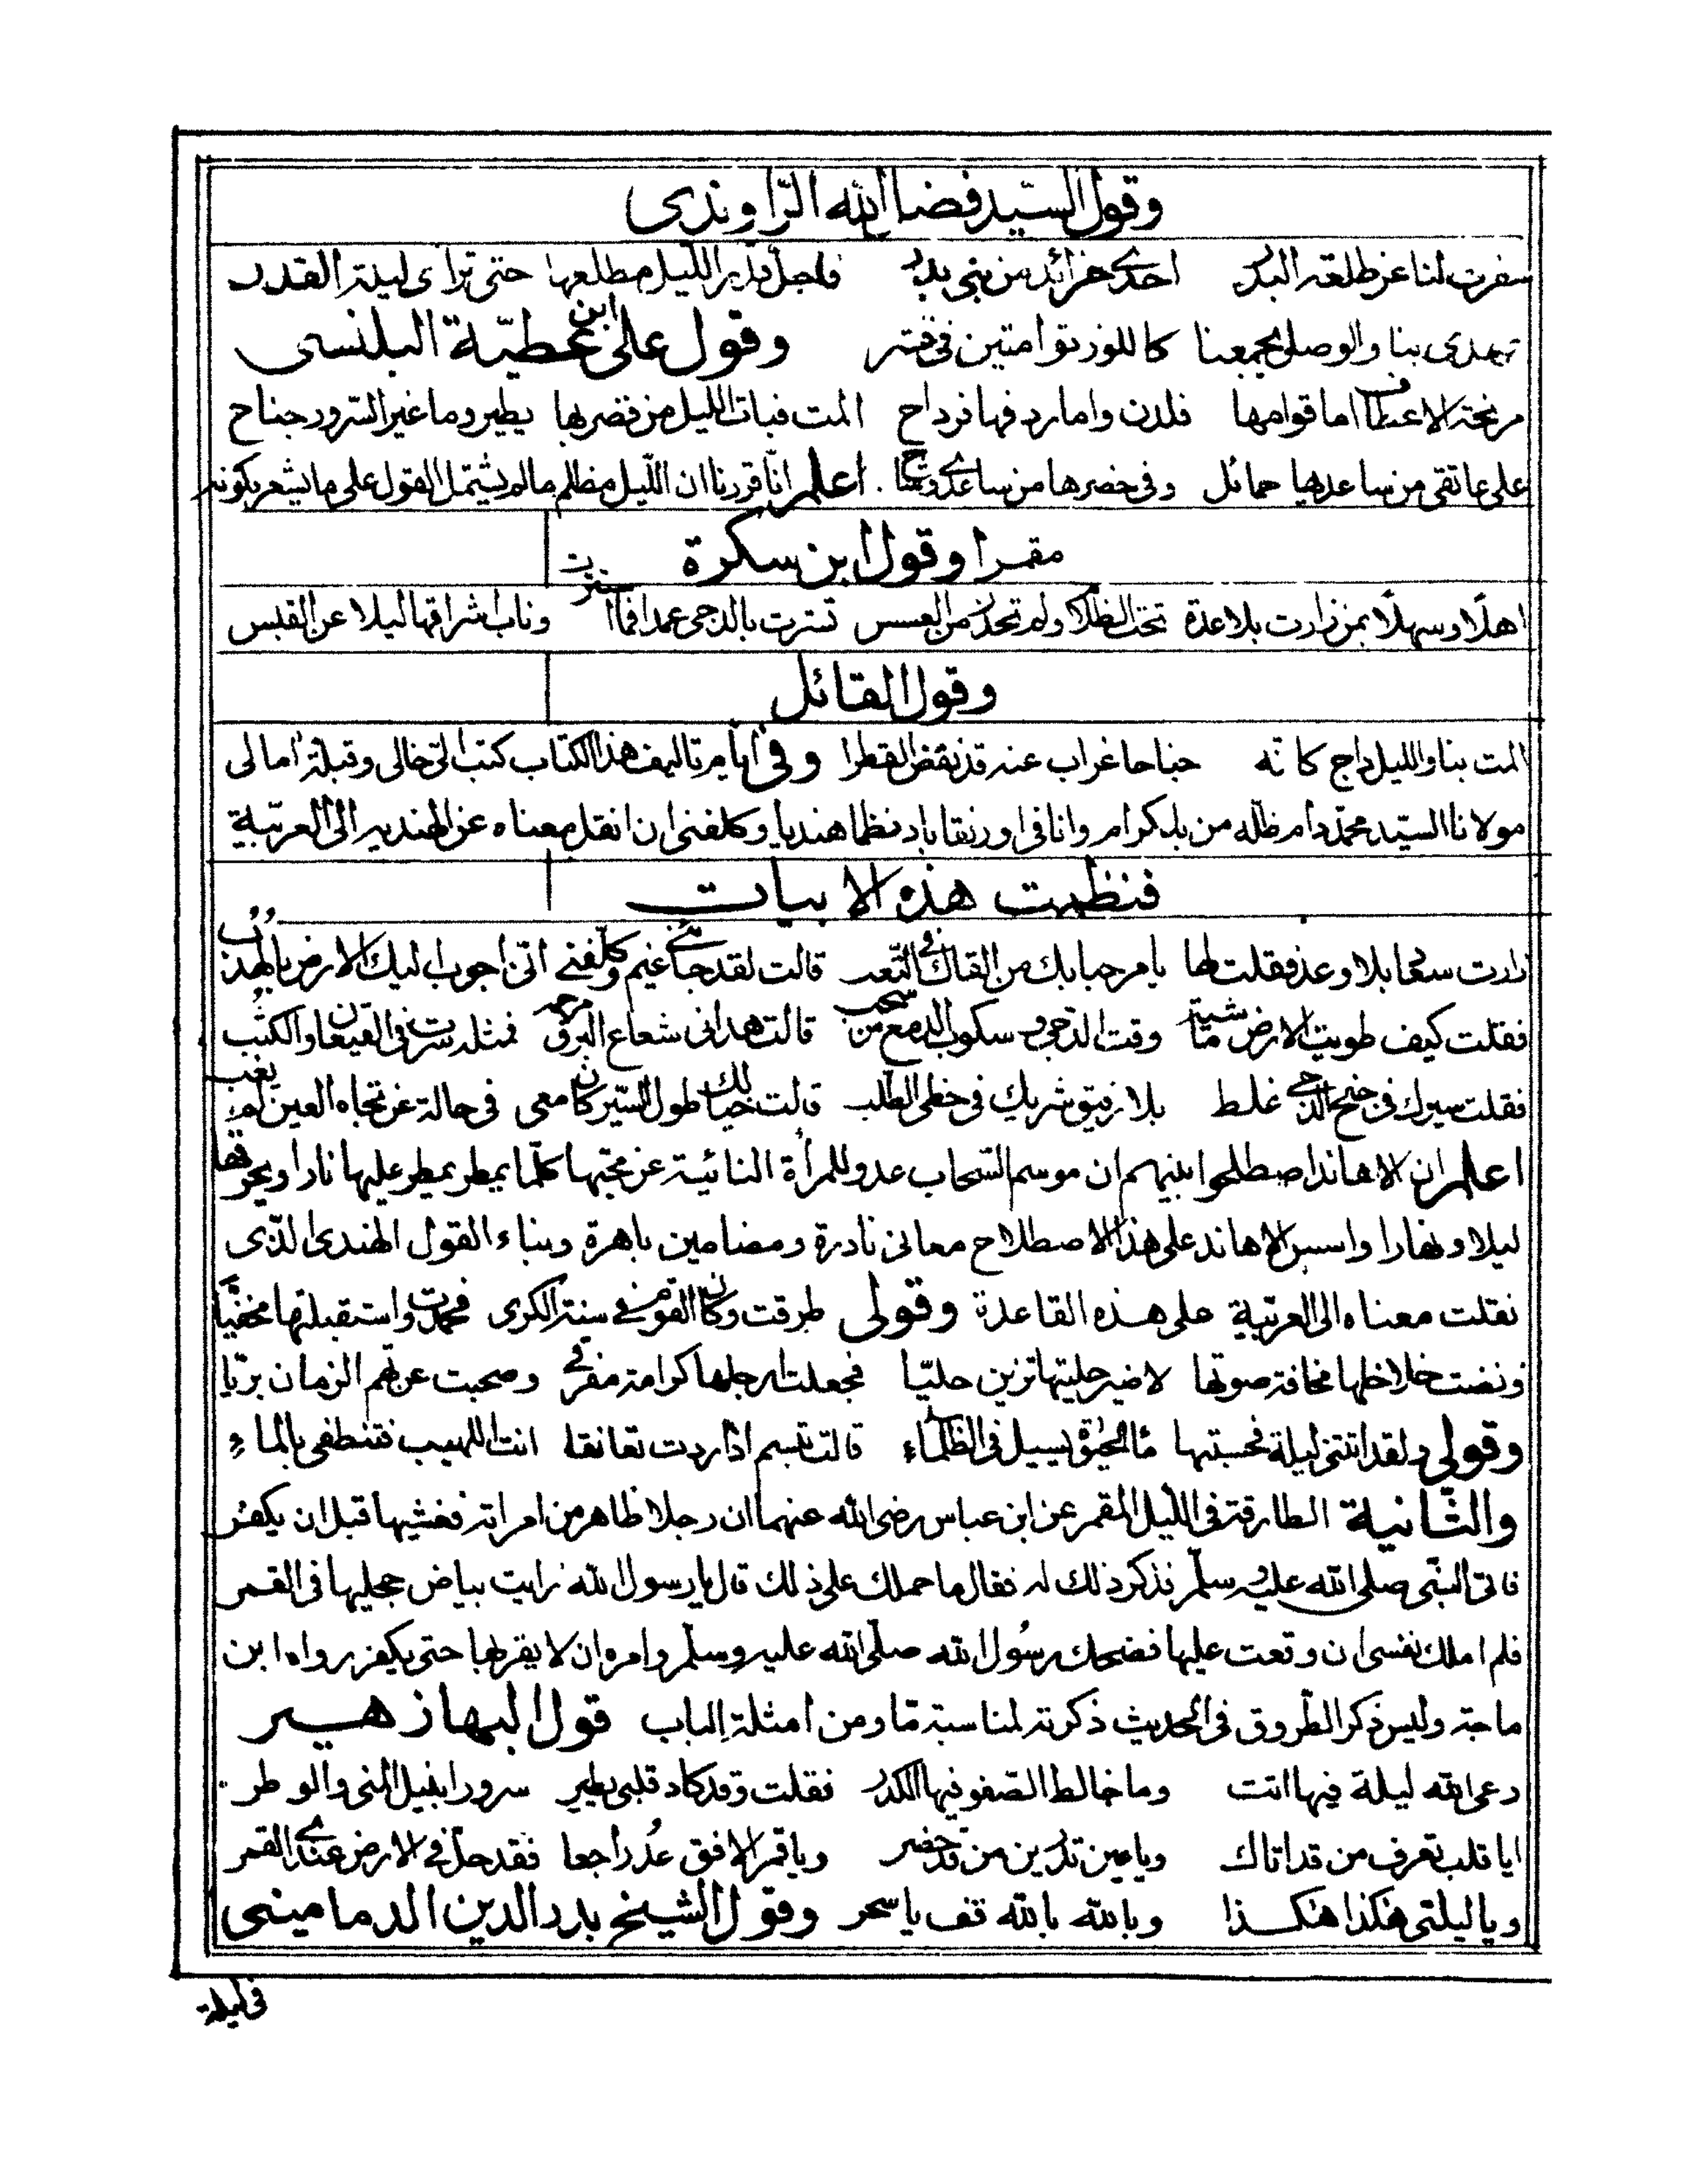 وقول السيد فضل الله الراوندى
سفرت لنا عن طلعة البدر احدى خرائد من بنى بدر فاجل قدر الليل مطلعها حتى تراءى ليلة القدر
تهدى بنا والوصل يجمعنا كاللوز توامتين فى قشر وقول على ابن عطية البلنسى
مرنحة الاعطاف اما قوامها فلدن واما ردفها فرداح المت فبات الليل من قصر بها يطير وما غير السرور جناح
على عاتقى من ساعديها حمائل وفى خصرها من ساعدى وشاح . اعلم انا قررنا ان الليل مظلم ما لم يشتمل القول على ما يشعر بكونه
مقمرا وقول ابن سكرة
اهلا وسهلا بمن زارت بلا عدة تحت الظلام ولم تحذر من العسس تسترت بالدجى عمدا فما استترت وناب اشراقها ليلا عن القبس
وقول القائل
المت بنا والليل داج كانه جناحا غراب عنه قد نفض القطرا وفى ايام تاليف هذا الكتاب كتب الى خالى وقبلة امالى
مولانا السيد محمد دام ظله من بلكرام وانا فى اورنقاباد نظما هنديا وكلفنى ان انقل معناه عن الهندية الى العربية
فنظمت هذه الابيات
زارت سعا بلا وعد فقلت لها يا مرحبا بك من القاك فى التعب قالت لقد جاءنى غيم وكلفنى انى اجوب اليك الارض بالهدب
فقلت كيف طويت الارض ماشية وقت الدجى وسكوب الدمع من سحب قالت هدانى شعاع البرق مرحمة فمثله سرت فى القيعان والكثب
فقلت سيرك فى جنح الدجى غلط بلا رفيق شريك فى خطى الطلب قالت خيالك طول السير كان معى فى حالة عن تجاه العين لم يغب
اعلم ان الاهاند اصطلحوا بينهم ان موسم السحاب عدو للمرأة النائية عن محبها كلما يمطر يمطر عليها نارا ويحرقها
ليلا ونهارا واسس الاهاند على هذا الاصطلاح معانى نادرة ومضامين باهرة وبناء القول الهندى الذى
نقلت معناه الى العربية على هذه القاعدة وقولى طرقت وكان القوم فى سنة الكرى فحمدت واستقبلتها مخفيا
ونضت خلاخلها مخافة صوتها لا ضير حليتها تزين حليا فجعلت ارجلها كرامة مفرقى وصحبت عن نعم الزمان بريا
وقولى ولقد اتتنى ليلة فحسبتها ماء الحيوة يسيل فى الظلماء قالت تبسم اذ اردت تعانقا انت اللهيب فتنطفى بالماء
والثانية الطارقة فى الليل المقمر عن ابن عباس رضى الله عنهما ان رجلا ظاهر من امراته فغشيها قبل ان يكفر
فاتى النبى صلى الله عليه وسلم فذكر ذلك له فقال ما حملك على ذلك قال يا رسول الله رايت بياض حجليها فى القمر
فلم املك نفسى ان وقعت عليها فضحك رسول الله صلى الله عليه وسلم وامره ان لا يقربها حتى يكفر رواه ابن
ماجة وليس ذكر الطروق فى الحديث ذكرته لمناسبة ما ومن امثلة الباب قول البها زهير
رعى الله ليلة فيها اتت وما خالط الصفو فيها الكدر فقلت وقد كاد قلبى يطير سرورا بنيل المنى والوطر
ايا قلب تعرف من قد اتاك ويا عين تدرين من قد حضر ويا قمر الافق عد راجعا فقد حل فى الارض عندى القمر
ويا ليلتى هكذا هكذا وبالله بالله قف يا سحر وقول الشيخ بدر الدين الدمامينى
فى ليلة